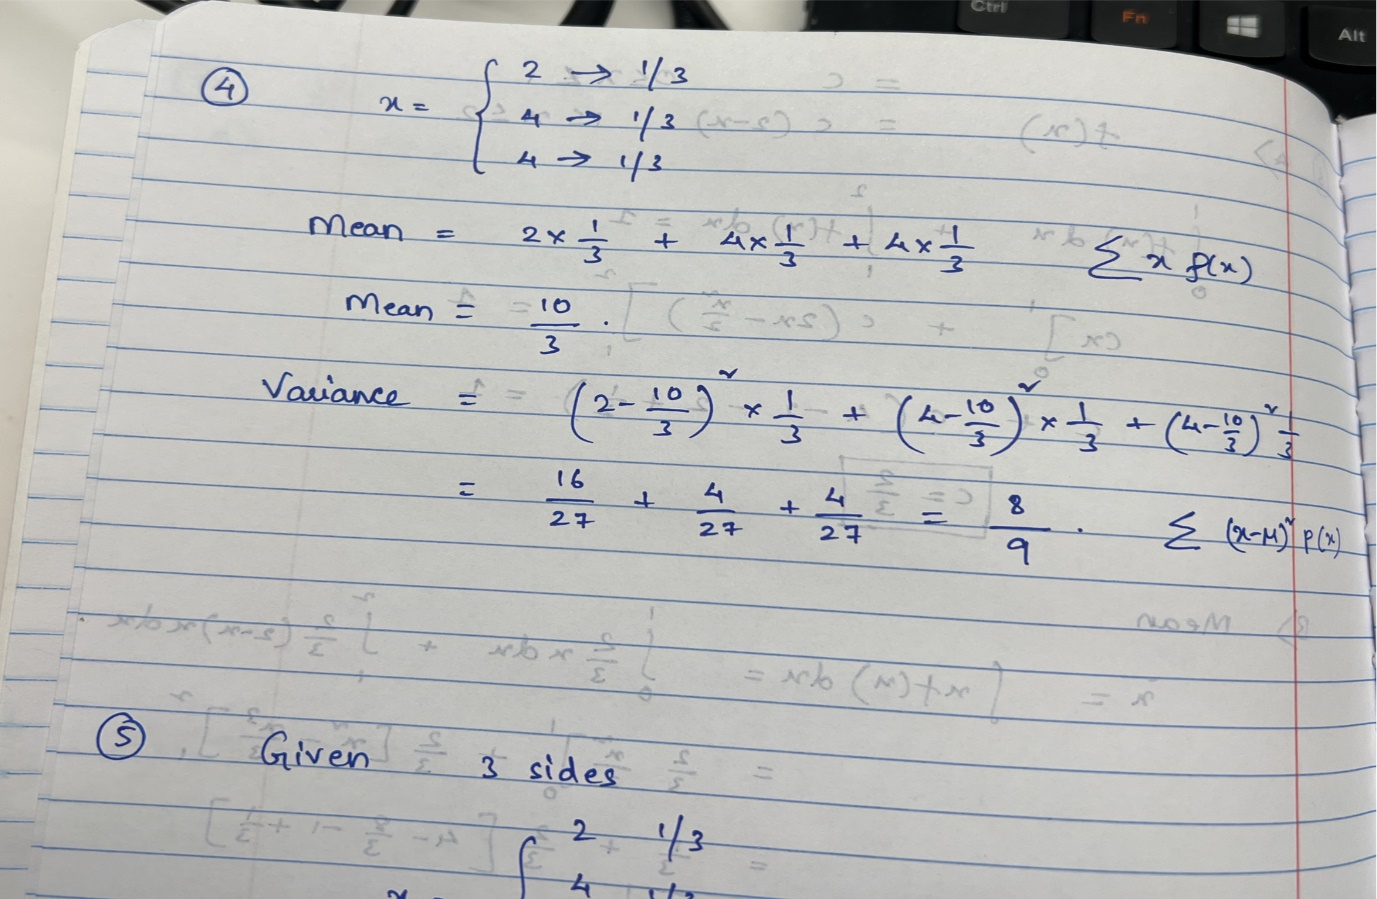 Ctrl Fn Alt
④ x = { 2 → 1/3
4 → 1/3
4 → 1/3
Mean = 2 × 1/3 + 4 × 1/3 + 4 × 1/3 Σ x f(x)
Mean = 10/3 .
Variance = (2 - 10/3)² × 1/3 + (4 - 10/3)² × 1/3 + (4 - 10/3)² 1/3
= 16/27 + 4/27 + 4/27 = 8/9 . Σ (x-μ)² P(x)
⑤ Given 3 sides
2 1/3
4 1/3